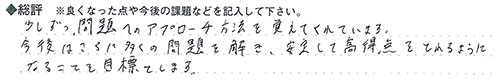 ◆総評 ※良くなった点や今後の課題などを記入して下さい。
少しずつ、問題へのアプローチ方法を覚えてくれています。
今後はさらに多くの問題を解き、安定して高得点をとれるように
なることを目標とします。